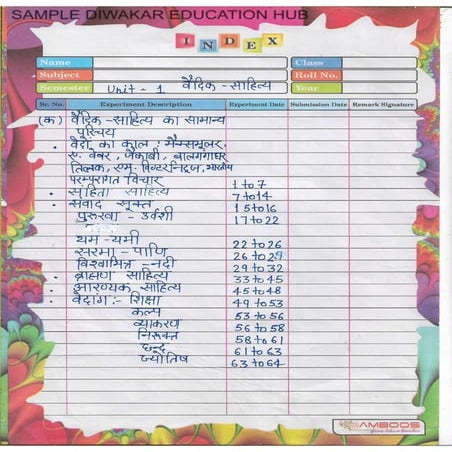 SAMPLE DIWAKAR EDUCATION HUB
INDEX
Name Class
Subject Roll No.
Semester Unit - 1 वैदिक - साहित्य Year
Sr. No. Experiment Description Experiment Date Submission Date Remark Signature
(क) वैदिक - साहित्य का सामान्य
परिचय
• वेदों का काल : मैक्समूलर,
ए. वेबर, जैकोबी, बालगंगाधर
तिलक, एम. विण्टरनिट्ज, भारतीय
परम्परागत विचार 1 to 7
• संहिता साहित्य 7 to 14
• संवाद सूक्त 15 to 16
पुरुरवा - उर्वशी 17 to 22
यम - यमी 22 to 26
सरमा - पाणि 26 to 29
विश्वामित्र - नदी 29 to 32
• ब्राह्मण साहित्य 33 to 45
• आरण्यक साहित्य 45 to 48
• वेदांग :- शिक्षा 49 to 53
कल्प 53 to 56
व्याकरण 56 to 58
निरुक्त 58 to 61
छन्द 61 to 63
ज्योतिष 63 to 64
AMBOOS